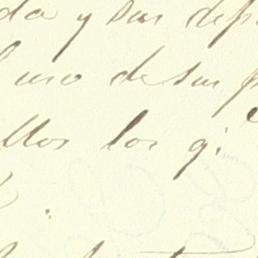 da y sus dep
uno de sus p
llos los q.